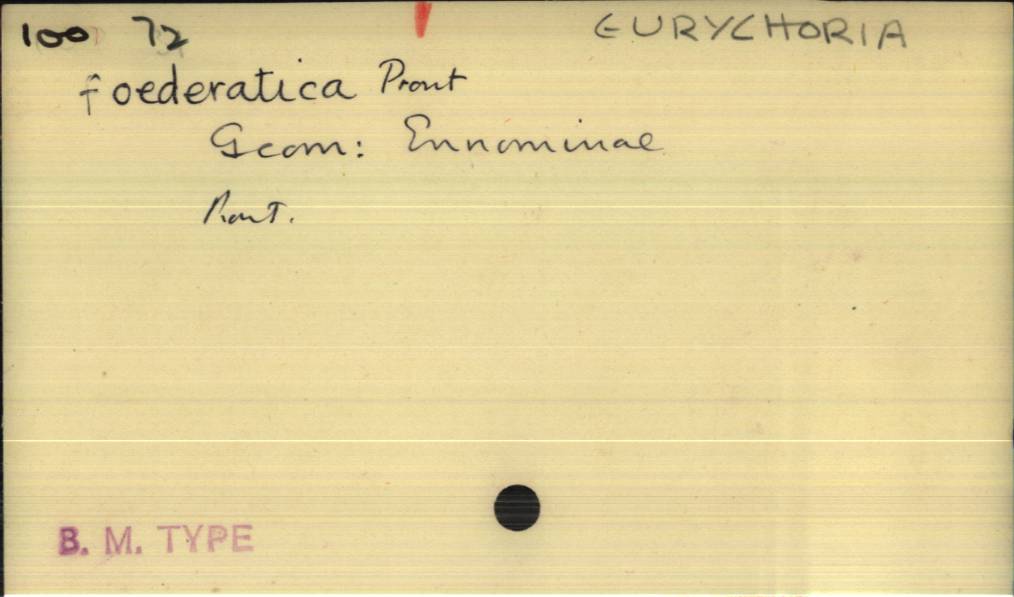 100 72 EURYCHORIA
foederatica Prout
Geom: Ennominae
Prout.
B. M. TYPE